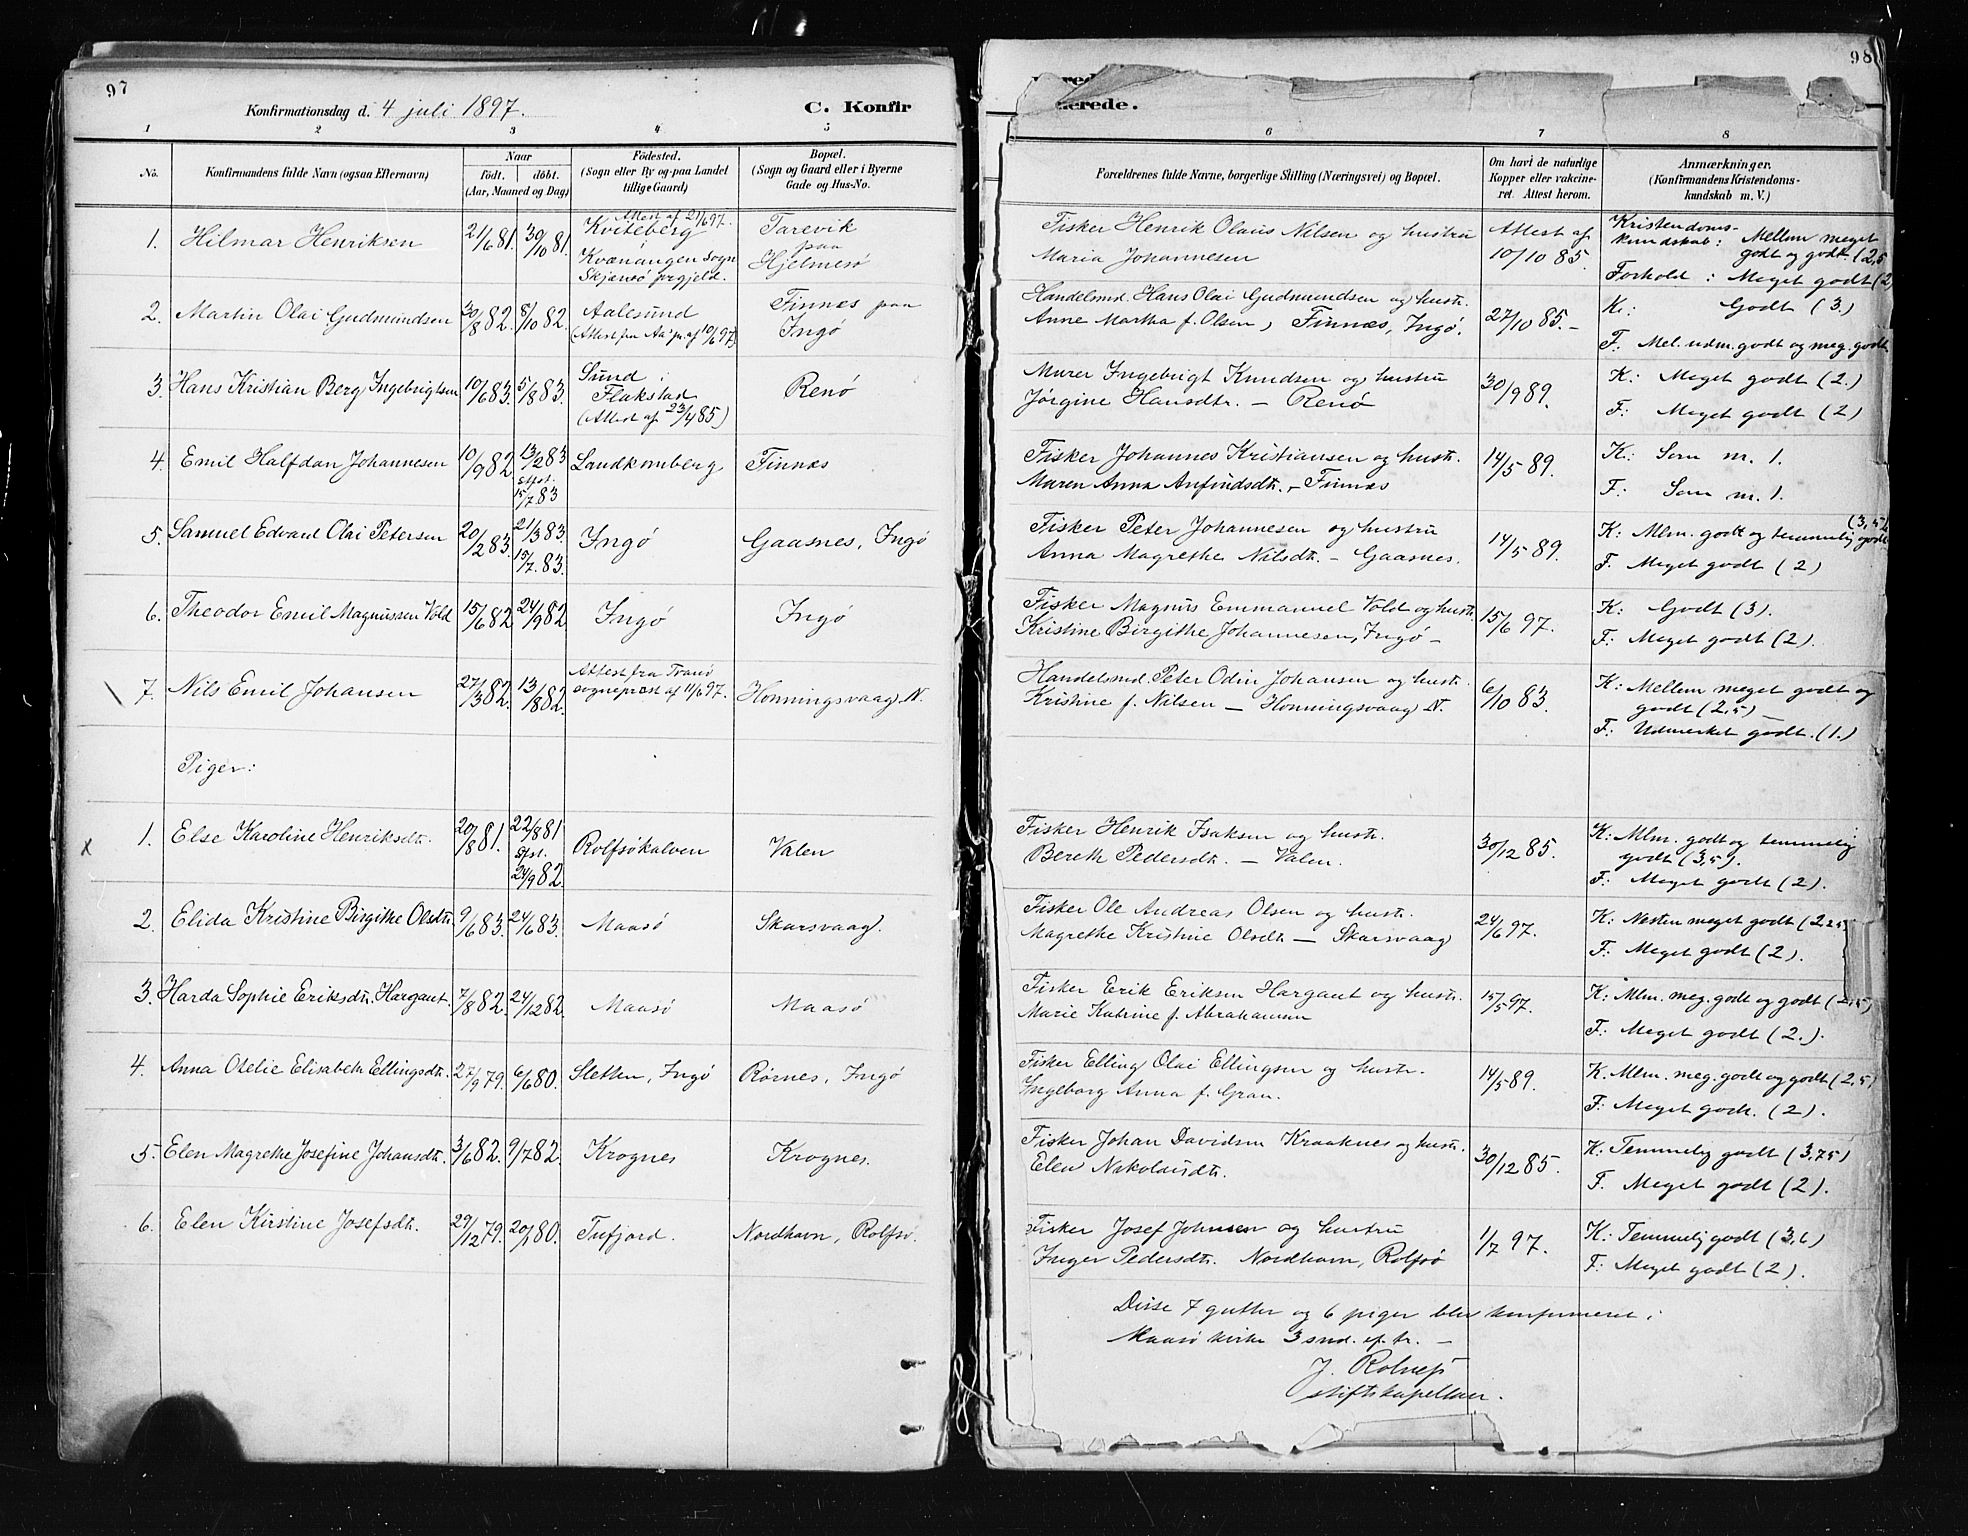 97
Konfirmationsdag d. 4 juli 1897.
C. Konfir
1 2 3 4 5
No.
Konfirmandens fulde Navn (ogsaa Efternavn)
Naar
født. døbt.
(Aar, Maaned og Dag)
Fødested.
(Sogn eller By og paa Landet
tillige Gaard)
Bopæl.
(Sogn og Gaard eller i Byerne
Gade og Hus-No.
1. Hilmar Henriksen 21/6 81. 30/10 81.
Attest af 21/6 97.
Kviteberg
Kvænangen sogn
Skjærvø prgjeld.
Tarevik
paa
Hjelmesø
2. Martin Olai Gudmundsen 30/8 82. 8/10 82.
Aalesund
(Attest fra Aa. pr. af 10/6 97)
Finnes paa
Ingø
3. Hans Kristian Berg Ingebrigtsen 10/6 83. 5/8 83.
Sund
Flakstad
(Attest af 23/4 85)
Renø
4. Emil Halfdan Johannesen 10/9 82. 13/2 83
stfst.
15/7 83
Sandkomberg
Finnes
5. Samuel Edvard Olai Petersen 20/2 83. 21/3 83.
15/7 83.
Ingø
Gaasnes, Ingø
6. Theodor Emil Magnussen Vold 15/6 82. 24/9 82.
Ingø
Ingø
7. Nils Emil Johansen 27/3 82. 13/8 82.
Attest fra Tranø
sogneprest af 11/6 97.
Honningsvaag N.
Piger:
x 1. Else Karoline Henriksdtr. 20/8 81. 22/8 81
stfst.
24/9 82.
Rolfsøkalven
Valen
2. Elida Kristine Birgithe Olsdtr. 9/6 83. 24/6 83.
Maasø
Skarsvaag.
3. Harda Sophie Eriksdtr. Hargaut. 7/8 82. 24/12 82.
Maasø
Maasø
4. Anna Otelie Elisabeth Ellingsdtr. 27/9 79. 6/6 80.
Sletten, Ingø
Rørnes, Ingø
5. Elen Magrethe Josefine Johansdtr. 3/6 82. 9/7 82.
Krognes
Krognes.
6. Elen Kirstine Josefsdtr. 29/12 79. 20/1 80.
Tufjord.
Nordhavn, Rolfsø.
98
erede.
6 7 8
Forældrenes fulde Navne, borgerlige Stilling (Næringsvei) og Bopæl.
Om havt de naturlige
Kopper eller vakcine-
ret. Attest herom.
Anmærkninger.
(Konfirmandens Kristendoms-
kundskab m. V.)
Fisker Henrik Olaus Nilsen og hustru
Maria Johannesen
Attest af
10/10 85.
Kristendoms-
kundskab: Mellem meget
godt og godt (2,5
Forhold: Meget godt (2)
Handelsmd. Hans Olai Gudmundsen og hustr.
Anne Martha f. Olsen, Finnes, Ingø.
27/10 85.
K: Godt (3.)
F: Mel. udm. godt og meg. godt
Murer Ingebrigt Knudsen og hustru
Jørgine Hansdtr. – Renø
30/9 89.
K: Meget godt (2.)
F: Meget godt (2)
Fisker Johannes Kristiansen og hustr.
Maren Anna Anfindsdtr. – Finnes
14/5 89.
K: Som n. 1.
F: Som n. 1.
Fisker Peter Johannesen og hustru
Anna Magrethe Nilsdtr. – Gaasnes.
14/5 89.
(3,5)
K: Mlm. godt og temmelig godt
F. Meget godt (2)
Fisker Magnus Emmanuel Vold og hustr.
Kristine Birgithe Johannesen, Ingø –
15/6 97.
K: Godt (3).
F: Meget godt (2).
Handelsmd. Peter Odin Johansen og hustr.
Kristine f. Nilsen – Honningsvaag N.
6/10 83.
K: Mellem meget godt og
godt (2,5)
F: Udmerket godt. (1.)
Fisker Henrik Isaksen og hustr.
Bereth Pedersdtr. – Valen.
30/12 85.
K: Mlm. godt og temmelig
godt (3,5).
F: Meget godt (2).
Fisker Ole Andreas Olsen og hustr.
Magrethe Kristine Olsdtr. – Skarsvaag
24/6 97.
K: Nesten meget godt (2,25)
F: Meget godt (2).
Fisker Erik Eriksen Hargaut og hustr.
Marie Katrine f. Abrahamsen
15/5 97.
K: Mlm. meg. godt og godt (2,5)
F: Meget godt (2.)
Fisker Elling Olai Ellingsen og hustr.
Ingeborg Anna f. Gran.
14/5 89.
K. Mlm. meg. godt og godt (2,5)
F: Meget godt. (2).
Fisker Johan Davidsen Kraaknes og hustr.
Elen Nikolaisdtr.
30/12 85.
K: Temmelig godt (3,75)
F. Meget godt (2).
Fisker Josef Johnsen og hustru
Inger Pedersdtr. Nordhavn, Rolfsø
1/7 97.
K: Temmelig godt (3,6)
F: Meget godt (2).
Disse 7 gutter og 6 piger blev konfirmeret i
Maasø kirke 3 snd. ef. tr. –
J.
stiftskapellan.